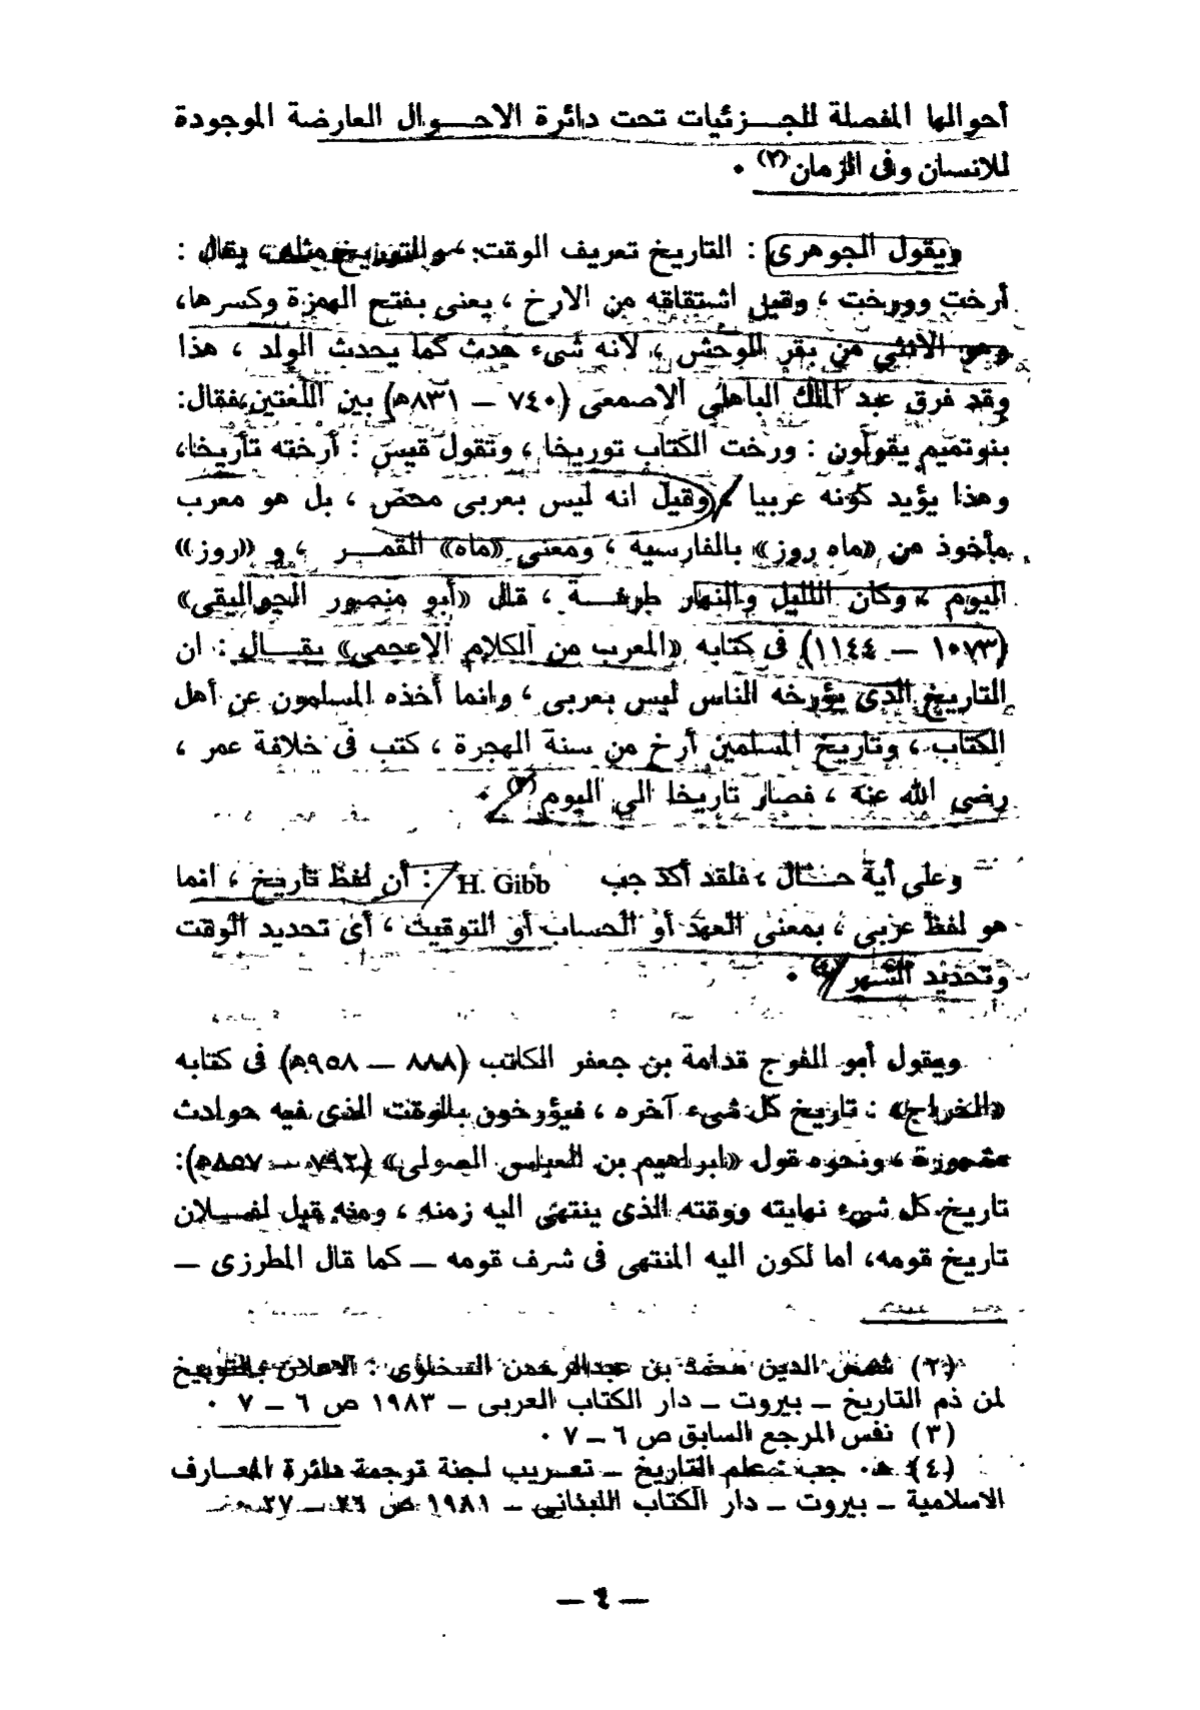 أحوالها المفصلة للجـــزئيات تحت دائرة الاحـــوال العارضة الموجودة
للانسان وفى الزمان(٢) ٠
ويقول الجوهرى : التاريخ تعريف الوقت ، والتوريخ مثله ، يقال :
أرخت وورخت ، وقيل اشتقاقه من الارخ ، يعنى بفتح الهمزة وكسرها،
وهو الانثى من بقر الوحش ، لانه شىء حدث كما يحدث الولد ، هذا
وقد فرق عبد الملك الباهلى الاصمعى (٧٤٠ – ٨٣١هـ) بين اللغتين فقال:
بنوتميم يقولون : ورخت الكتاب توريخا ، وتقول قيس : أرخته تأريخا،
وهذا يؤيد كونه عربيا ، وقيل انه ليس بعربى محض ، بل هو معرب
مأخوذ من «ماه روز» بالفارسية ، ومعنى «ماه» القمـــر ، و «روز»
اليوم ، وكان الليل والنهار طرفـــه ، قال «أبو منصور الجواليقى»
(١٠٧٣ – ١١٤٤) فى كتابه «المعرب من الكلام الاعجمى» يقـــال : ان
التاريخ الذى يؤرخه الناس ليس بعربى ، وانما أخذه المسلمون عن أهل
الكتاب ، وتاريخ المسلمين أرخ من سنة الهجرة ، كتب فى خلافة عمر ،
رضى الله عنه ، فصار تاريخا الى اليوم(٣) ٠
وعلى أية حـــال ، فلقد أكد جب H. Gibb : أن لفظ تاريخ ، انما
هو لفظ عربى ، بمعنى العهد أو الحساب أو التوقيت ، أى تحديد الوقت
وتحديد الشهر(٤) ٠
ويقول أبو الفرج قدامة بن جعفر الكاتب (٨٨٨ – ٩٥٨هـ) فى كتابه
«الخراج» : تاريخ كل شىء آخره ، فيؤرخون بالوقت الذى فيه حوادث
مشهورة ، ونحوه قول «ابراهيم بن العباس الصولى» (٧٩٢ – ٨٥٧هـ):
تاريخ كل شىء نهايته ووقته الذى ينتهى اليه زمنه ، ومنه قيل لفـــلان
تاريخ قومه، اما لكون اليه المنتهى فى شرف قومه – كما قال المطرزى –
(٢) شمس الدين محمد بن عبدالرحمن السخاوى : الاعلان بالتوبيخ
لمن ذم التاريخ – بيروت – دار الكتاب العربى – ١٩٨٣ ص ٦ – ٧ ٠
(٣) نفس المرجع السابق ص ٦ – ٧ ٠
(٤) هـ٠ جب : علم التاريخ – تعـريب لجنة ترجمة دائرة المعـارف
الاسلامية – بيروت – دار الكتاب اللبنانى – ١٩٨١ ص ٢٦ – ٢٧
– ٤ –